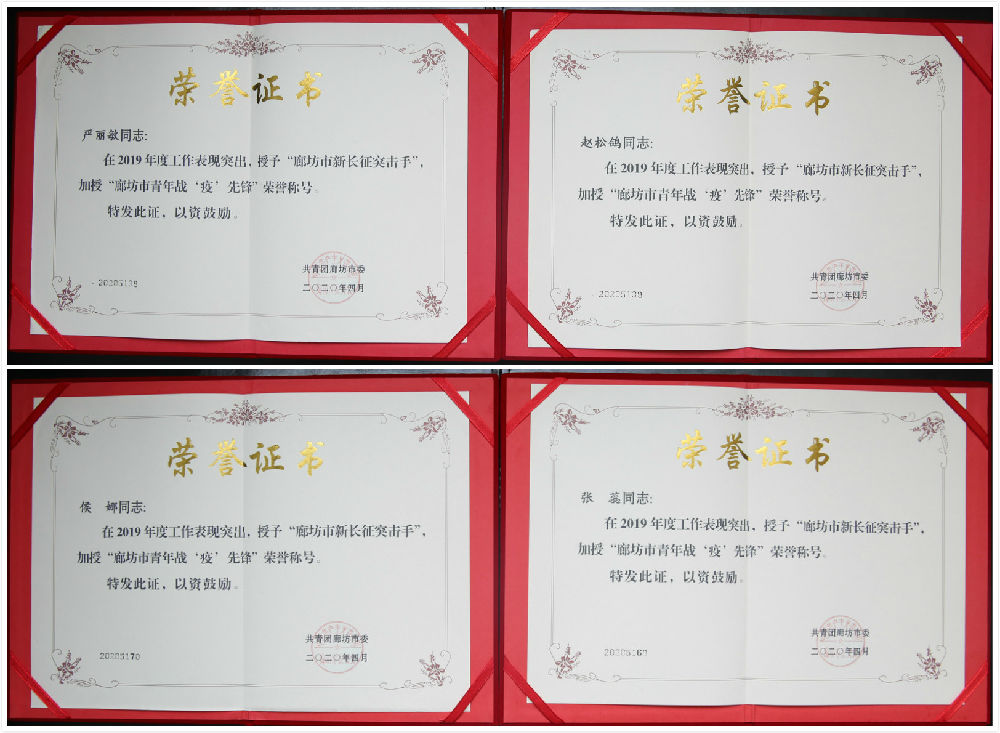 荣誉证书
严丽敏同志:
在2019年度工作表现突出,授予“廊坊市新长征突击手”,
加授“廊坊市青年战‘疫’先锋”荣誉称号。
特发此证,以资鼓励。
共青团廊坊市委
二〇二〇年四月
荣誉证书
赵松鸽同志:
在2019年度工作表现突出,授予“廊坊市新长征突击手”,
加授“廊坊市青年战‘疫’先锋”荣誉称号。
特发此证,以资鼓励。
共青团廊坊市委
二〇二〇年四月
20205139
荣誉证书
侯 娜同志:
在2019年度工作表现突出,授予“廊坊市新长征突击手”,
加授“廊坊市青年战‘疫’先锋”荣誉称号。
特发此证,以资鼓励。
共青团廊坊市委
二〇二〇年四月
20205170
荣誉证书
张 蕊同志:
在2019年度工作表现突出,授予“廊坊市新长征突击手”,
加授“廊坊市青年战‘疫’先锋”荣誉称号。
特发此证,以资鼓励。
共青团廊坊市委
二〇二〇年四月